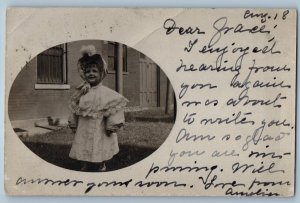 Aug. 18
Dear Grace,
I enjoyed
hearing from
you again
was about
to write you.
Am so glad
you are im-
proving. Will
answer yours soon. Love from